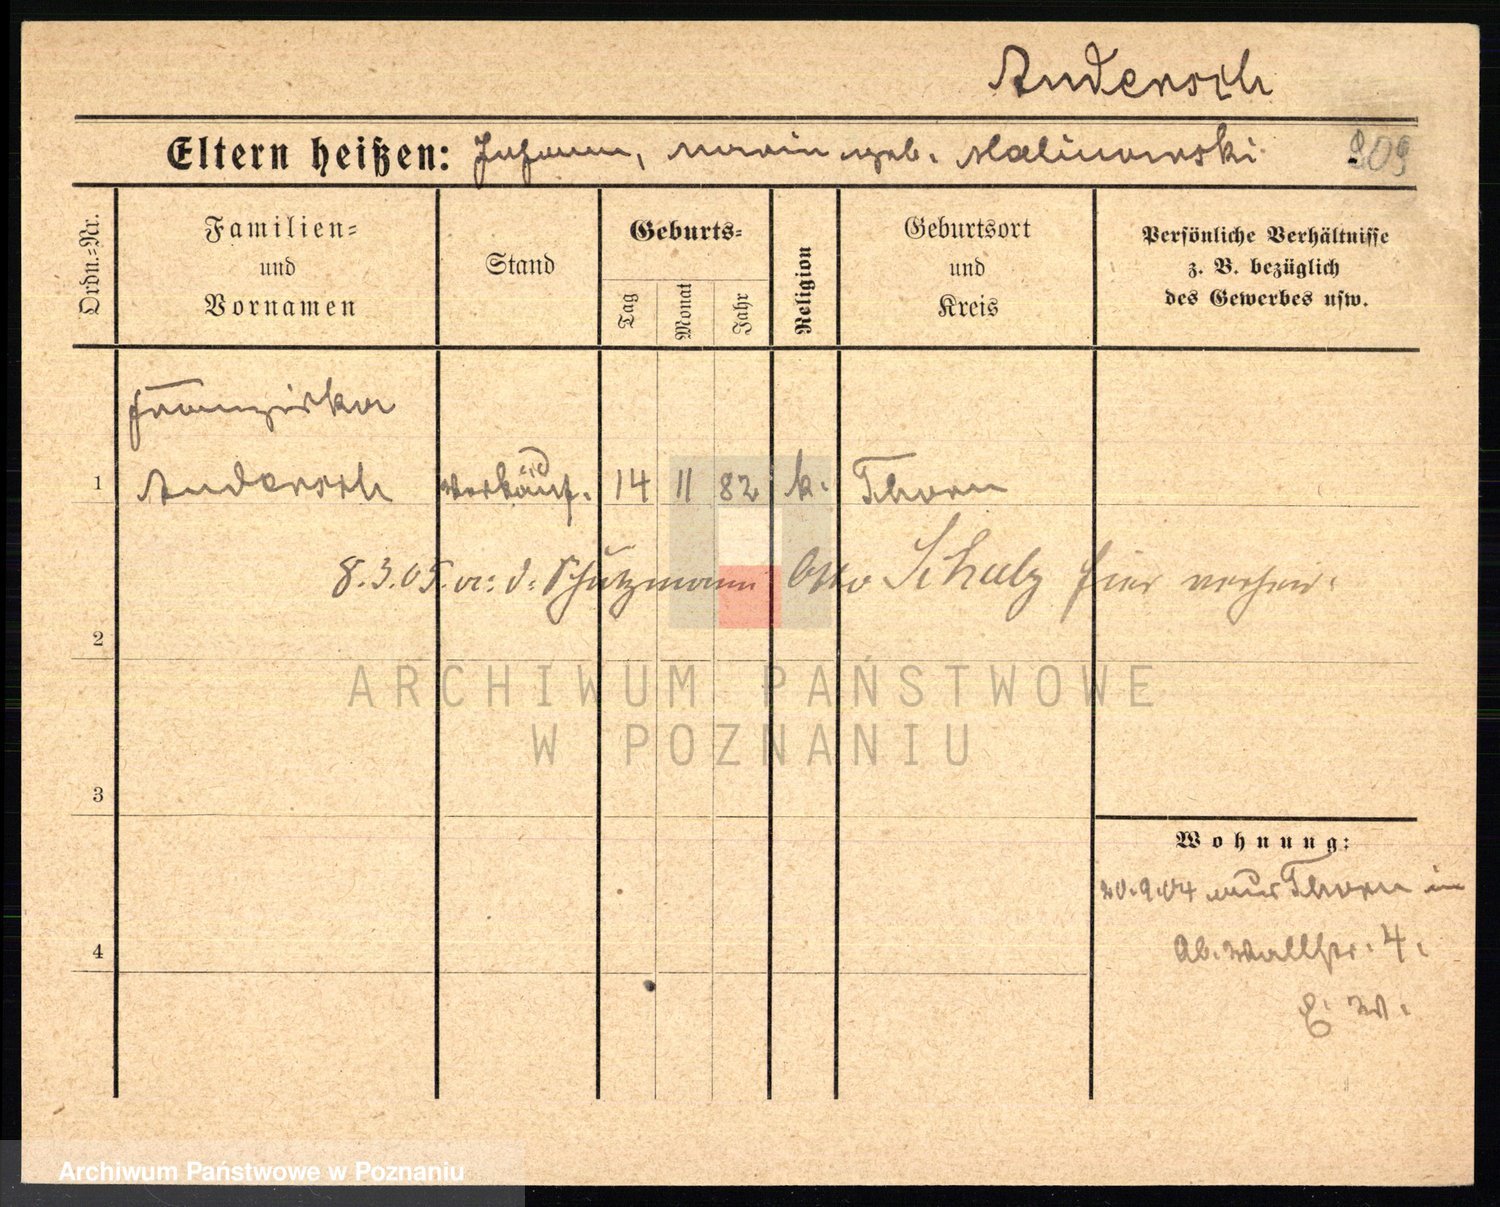 Andersch
Eltern heißen: Johann, Maria geb. Malinowski 209
Ordn.=Nr.
Familien=
und
Vornamen
Stand
Geburts=
Tag
Monat
Jahr
Religion
Geburtsort
und
Kreis
Persönliche Verhältnisse
z. B. bezüglich
des Gewerbes usw.
Franziska
1 Andersch Verkäuf. led 14 11 82 k. Thorn
8.3.05. m. d. Schutzmann Otto Schulz hier verheir.
2
ARCHIWUM PAŃSTWOWE
W POZNANIU
3
Wohnung:
20.9.04 aus Thorn in
Ob. Wallstr. 4.
4
E. W.
Archiwum Państwowe w Poznaniu